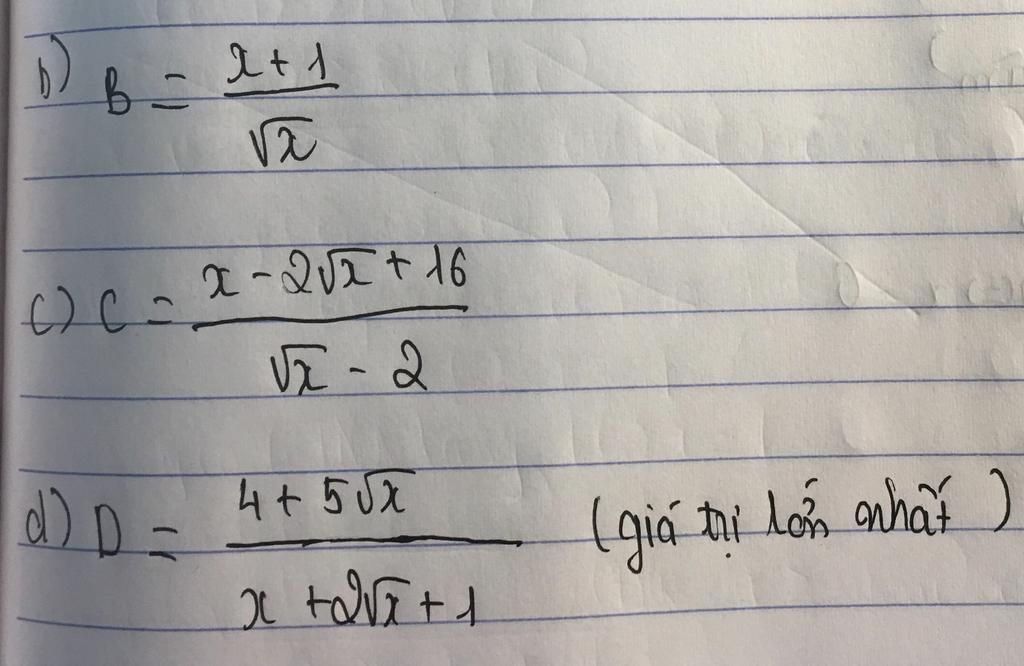 b) B = \frac{x+1}{\sqrt{x}}
c) C = \frac{x-2\sqrt{x}+16}{\sqrt{x}-2}
d) D = \frac{4+5\sqrt{x}}{x+2\sqrt{x}+1} (giá trị lớn nhất)